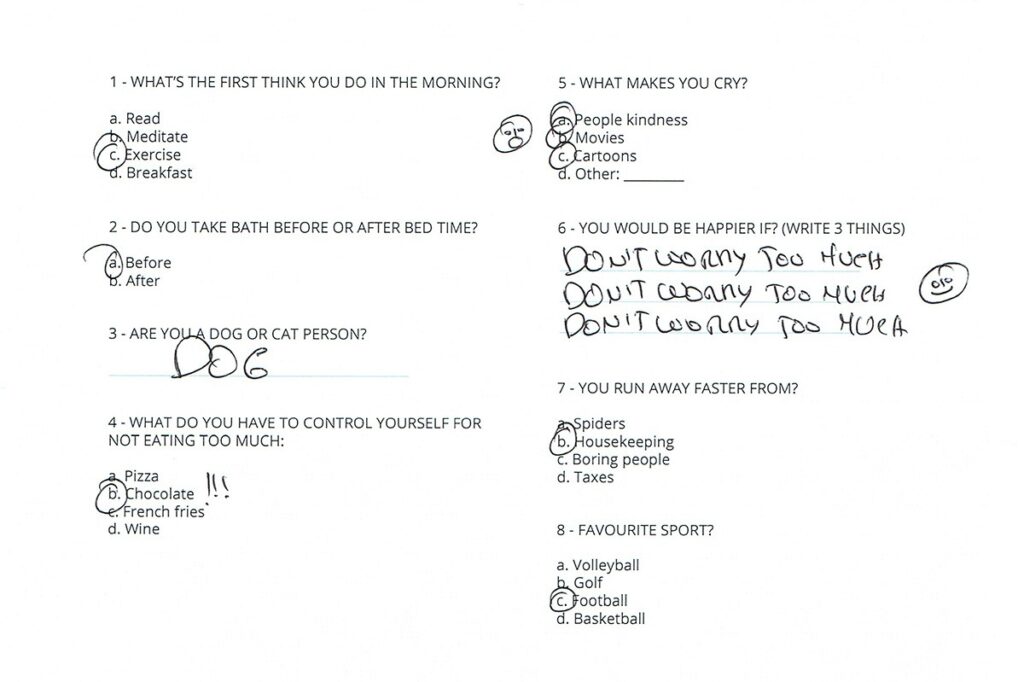 1 - WHAT'S THE FIRST THINK YOU DO IN THE MORNING?
a. Read
b. Meditate
c. Exercise
d. Breakfast
2 - DO YOU TAKE BATH BEFORE OR AFTER BED TIME?
a. Before
b. After
3 - ARE YOU A DOG OR CAT PERSON?
DOG
4 - WHAT DO YOU HAVE TO CONTROL YOURSELF FOR
NOT EATING TOO MUCH:
a. Pizza
b. Chocolate !!!
c. French fries
d. Wine
5 - WHAT MAKES YOU CRY?
a. People kindness
b. Movies
c. Cartoons
d. Other: ________
6 - YOU WOULD BE HAPPIER IF? (WRITE 3 THINGS)
DON'T WORRY TOO MUCH
DON'T WORRY TOO MUCH
DON'T WORRY TOO MUCH
7 - YOU RUN AWAY FASTER FROM?
a. Spiders
b. Housekeeping
c. Boring people
d. Taxes
8 - FAVOURITE SPORT?
a. Volleyball
b. Golf
c. Football
d. Basketball